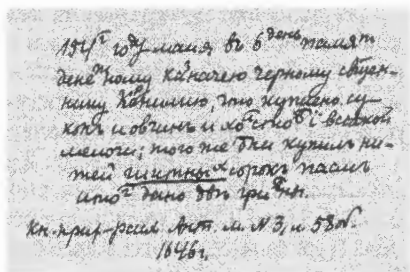 154 году маия въ 6 день памят
денежному казначею черному свщен-
нику что куплено су-
конъ и овчинъ и и всякой
мелочи; того же дни купилъ ни-
тей шитныхъ сорокъ пасмъ
дано двѣ гривны.
Кн. прих-расх. Ант. м. N 3, л. 58 об.
1646 г.